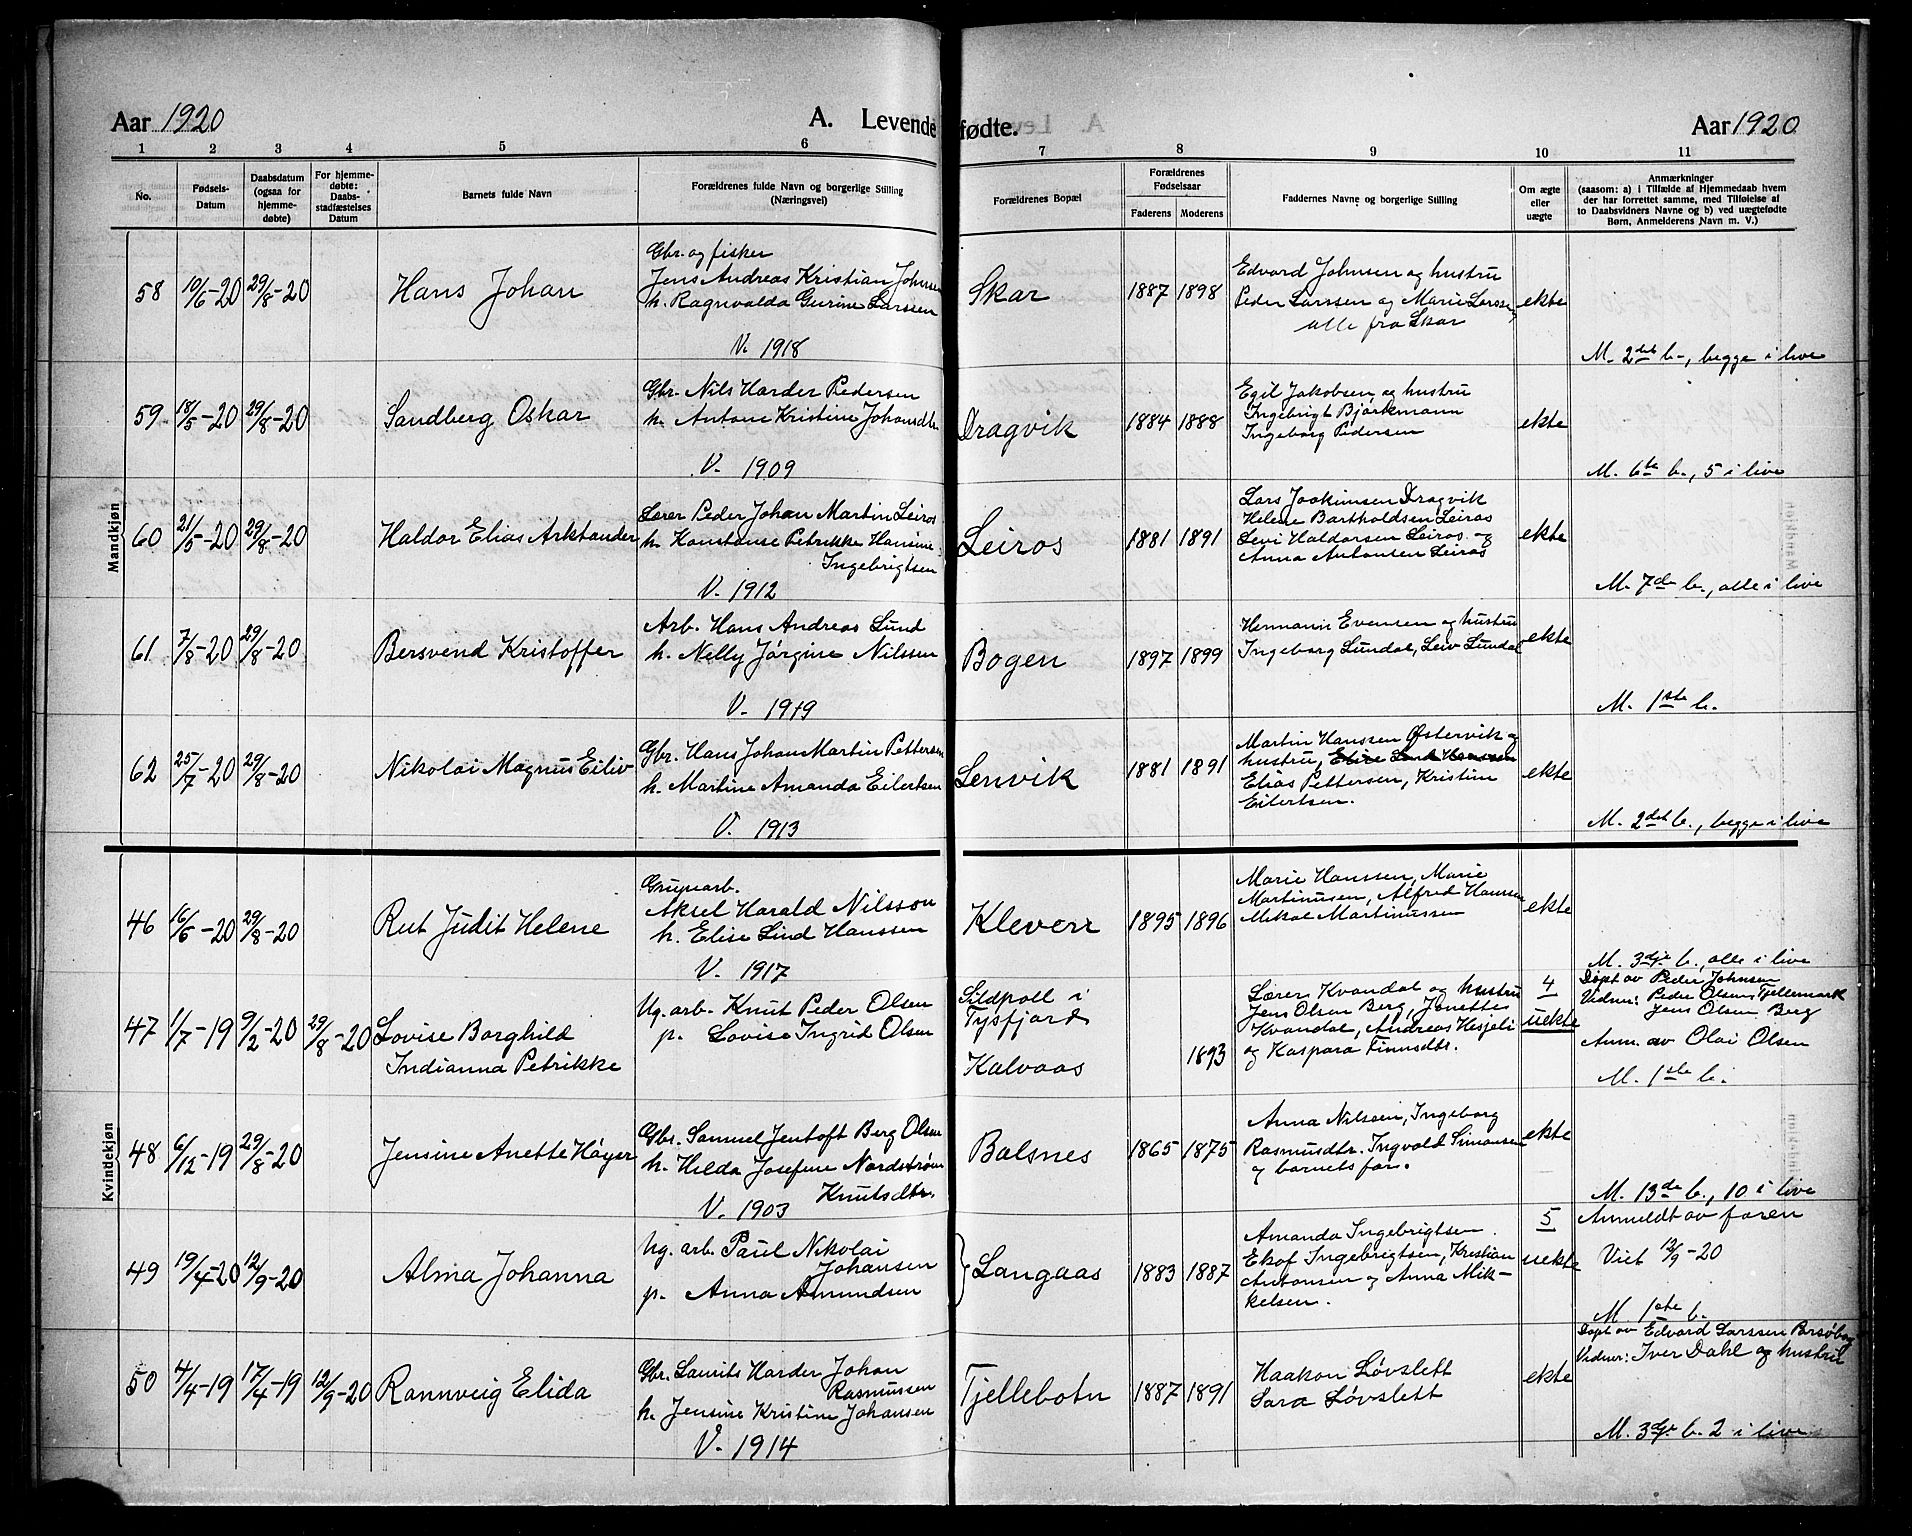 Aar 1920 A. Levende fødte. Aar 1920
1 2 3 4 5 6 7 8 9 10 11
No.
Fødsels-
Datum
Daabsdatum
(ogsaa for
hjemme-
døbte)
For hjemme-
døbte:
Daabs-
stadfæstelses
Datum
Barnets fulde Navn
Forældrenes fulde Navn og borgerlige Stilling
(Næringsvei)
Forældrenes Bopæl
Forældrenes
Fødselsaar
Faderens Moderens
Faddernes Navne og borgerlige Stilling
Om ægte
eller
uægte
Anmærkninger
(saasom: a) i Tilfælde af Hjemmedaab hvem
der har forrettet samme, med Tilføielse af
to Daabsvidners Navne og b) ved uægtefødte
Børn, Anmelderens Navn m. V.)
Mandkjøn
58 10/6-20 29/8-20 Hans Johan
Gbr. og fisker
Jens Andreas Kristian Johnsen
h. Ragnvalda Gurine Larssen
V. 1918
Skar 1887 1898
Edvard Johnsen og hustru
Peder Larssen og Marie Larssen,
alle fra Skar
ekte
M. 2det b., begge i live
59 18/5-20 29/8-20 Sandberg Oskar
Gbr. Nils Harder Pedersen
h. Antone Kristine Johansdtr.
V. 1909
Dragvik 1884 1888
Egil Jakobsen og hustru
Ingebrigt Bjørkmann
Ingeborg Pedersen
ekte
M. 6te b., 5 i live
60 21/5-20 29/8-20 Haldor Elias Arktander
Lærer Peder Johan Martin Leiros
h. Konstanse Petrikke Hansine
Ingebrigtsen
V. 1912
Leiros 1881 1891
Lars Joakimsen Dragvik
Helene Bartholdsen Leiros
Levi Haldorsen Leiros og
Anna Antonsen Leiros
ekte
M. 7de b., alle i live
61 7/8-20 29/8-20 Bersvend Kristoffer
Arb. Hans Andreas Lund
h. Nelly Jørgine Nilssen
V. 1919
Bogen 1897 1899
Hermann Evensen og hustru
Ingeborg Lundal, Leiv Lundal
ekte
M. 1ste b.
62 25/7-20 29/8-20 Nikolai Magnus Eiliv
Gbr. Hans Johan Martin Pettersen
h. Martine Amanda Eilertsen
V. 1913
Lenvik 1881 1891
Martin Hanssen Østervik og
hustru, Elise Lind Hanssen
Elias Pettersen, Kristine
Eilertsen.
ekte
M. 2det b., begge i live
Kvindekjøn
46 16/6-20 29/8-20 Rut Judit Helene
Grupearb.
Aksel Harald Nilsson
h. Elise Lind Hanssen
V. 1917
Kleven 1895 1896
Marie Hanssen, Marie
Martinusen, Alfred Hanssen
Mikal Martinussen
ekte
M. 3dje b., alle i live
47 1/7-19 9/2-20 29/8-20 Lovise Borghild
Indianna Petrikke
Ug. arb. Knut Peder Olsen
p. Lovise Ingrid Olsen
Sildpoll i
Tysfjord
Kalvaas
1893
Lærer Kvandal og hustru
Jens Olsen Berg, Jenette
Kvandal, Andreas Hesjeli
og Kaspara Finnsdtr.
4
uekte
Døpt av Peder Johnsen
Vidner: Peder Olsen, Fjellemark
Jens Olsen Berg
Anm. av Olai Olsen
M. 1ste b.
48 6/12-19 29/8-20 Jensine Anette Høyer
Gbr. Samuel Jentoft Berg Olsen
h. Hilda Josefine Nordstrøm
Knutsdtr.
V. 1903
Balsnes 1865 1875
Anna Nilsen, Ingeborg
Rasmusdtr. Ingvald Simonsen
og barnets far.
ekte
M. 13de b., 10 i live
49 19/4-20 12/9-20 Alma Johanna
Ug. arb. Paul Nikolai
Johansen
p. Anna Amundsen
Langaas 1883 1887
Amanda Ingebrigtsen
Ekof Ingebrigtsen, Kristian
Antonsen og Anna Mik-
kelsen.
5
uekte
Anmeldt av faren
Viet 12/9-20
M. 1ste b.
50 4/4-19 17/4-19 12/9-20 Rannveig Elida
Gbr. Laurits Harder Johan
Rasmussen
h. Jensine Kristine Johansen
V. 1914
Tjellebotn 1887 1891
Haakon Løvslett
Sara Løvslett
ekte
Døpt av Edvard Larssen
Vidner: Iver Dahl og hustru
M. 3dje b. 2 i live